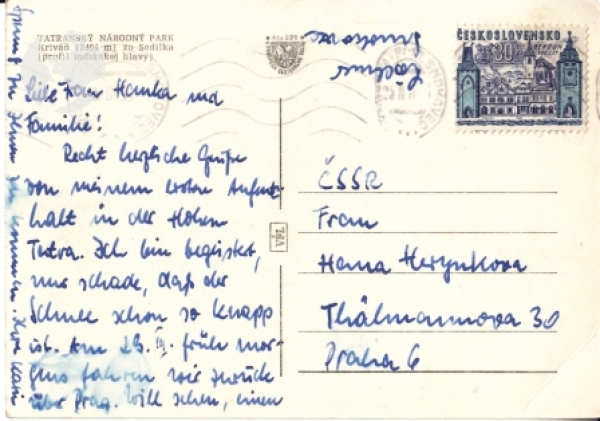 TATRANSKÝ NÁRODNÝ PARK
Kriváň (2494 m) zo Sedielka
(profil indiánskej hlavy)
ČESKOSLOVENSKO
30
Liebe Frau Hanka und
Familie!
Recht herzliche Grüße
von meinem ersten Aufent-
halt in der Hohen
Tatra. Ich bin begeistert,
nur schade, daß der
Schnee schon so knapp
ist. Am 29. III. früh mor-
gens fahren wir zurück
über Prag. Will sehen, einen
Sprung zu Ihnen zu kommen. Ihre
ČSSR
Frau
Hana Herynkova
Thälmannova 30
Praha 6